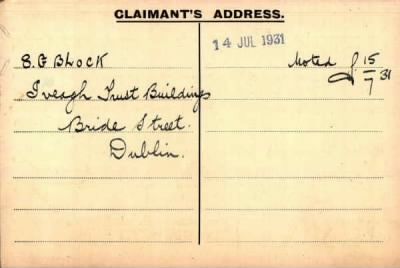 CLAIMANT'S ADDRESS.
14 JUL 1931
8. G BLOCK
Iveagh Trust Buildings
Bride Street.
Dublin.
Noted
15/7 31